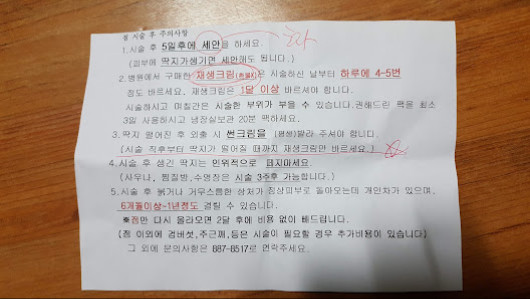 점 시술 후 주의사항
1.시술 후 5일후에 세안을 하세요.
(피부에 딱지가생기면 세안해도 됩니다.)
2.병원에서 구매한 재생크림()은 시술하신 날부터 하루에 4-5번
정도 바르세요. 재생크림은 1달 이상 바르셔야 합니다.
시술하시고 며칠간은 시술한 부위가 부을 수 있습니다.권해드린 팩을 최소
3일 사용하시고 냉장실보관 20분 팩하세요.
3.딱지 떨어진 후 외출 시 썬크림을 (평생)발라 주셔야 합니다.
(시술 직후부터 딱지가 떨어질 때까지 재생크림만 바르세요.)
4.시술 후 생긴 딱지는 인위적으로 떼지마세요.
(사우나, 찜질방,수영장은 시술 3주후 가능합니다.)
5.시술 후 붉거나 거무스름한 상처가 정상피부로 돌아오는데 개인차가 있으며,
6개월이상~1년정도 걸릴 수 있습니다.
※점만 다시 올라오면 2달 후에 비용 없이 빼드립니다.
(점 이외에 검버섯,주근깨,등은 시술이 필요할 경우 추가비용이 있습니다.)
그 외에 문의사항은 687-8517로 연락주세요.